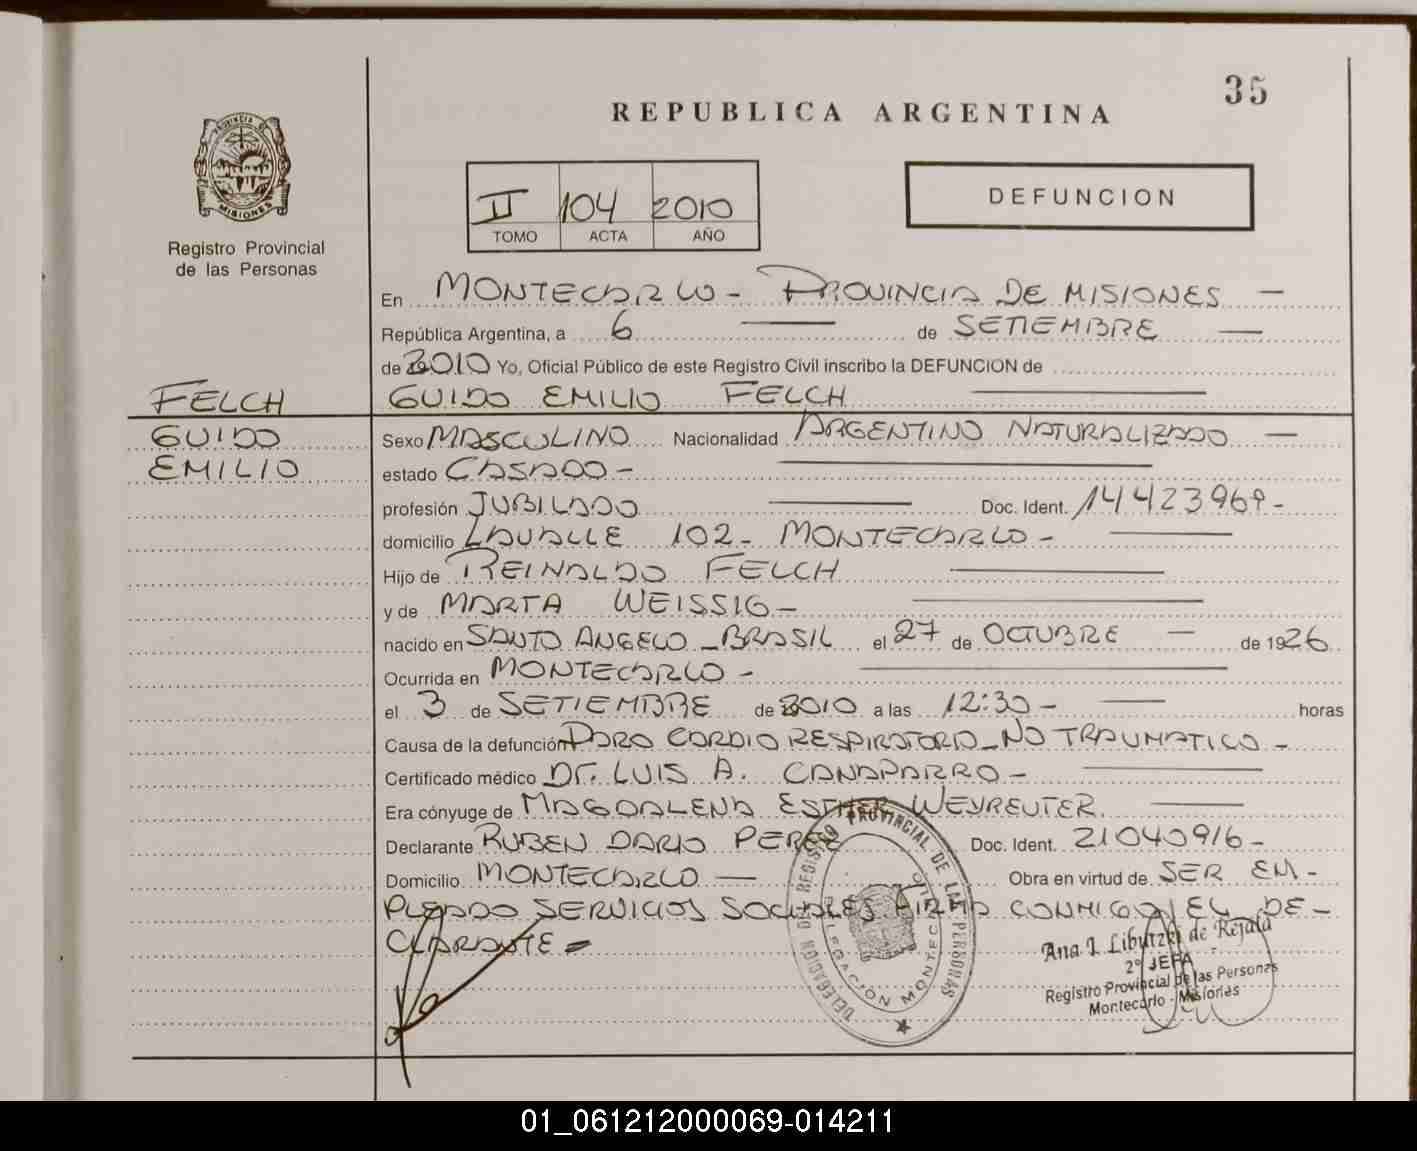 35
REPUBLICA ARGENTINA
PROVINCIA DE
MISIONES
II 104 2010
TOMO ACTA AÑO
DEFUNCION
Registro Provincial
de las Personas
En MONTECARLO - PROVINCIA DE MISIONES —
República Argentina, a 6 — de SETIEMBRE —
de 2010 Yo, Oficial Público de este Registro Civil inscribo la DEFUNCION de
FELCH GUIDO EMILIO FELCH —
GUIDO Sexo MASCULINO Nacionalidad ARGENTINO NATURALIZADO —
EMILIO estado CASADO - —
profesión JUBILADO — Doc. Ident. 14423969-
domicilio LAVALLE 102- MONTECARLO - —
Hijo de REINALDO FELCH —
y de MARTA WEISSIG - —
nacido en SANTO ANGELO - BRASIL el 27 de OCTUBRE — de 1926
Ocurrida en MONTECARLO - —
el 3 de SETIEMBRE de 2010 a las 12:30 - — horas
Causa de la defunción PARO CARDIO RESPIRATORIO - NO TRAUMATICO -
Certificado médico Dr. LUIS A. CANAPARRO - —
Era cónyuge de MAGDALENA ESTHER WEYREUTER —
Declarante RUBEN DARIO PEREZ Doc. Ident. 21040916-
Domicilio MONTECARLO — Obra en virtud de SER EM-
PLEADO SERVICIOS SOCIALES FIRMA CONMIGO EL DE-
CLARANTE
DELEGACION DEL REGISTRO PROVINCIAL DE LAS PERSONAS
DELEGACION MONTECARLO
Ana I. Libutzki de Rejala
2º JEFA
Registro Provincial de las Personas
Montecarlo - Misiones
01_061212000069-014211